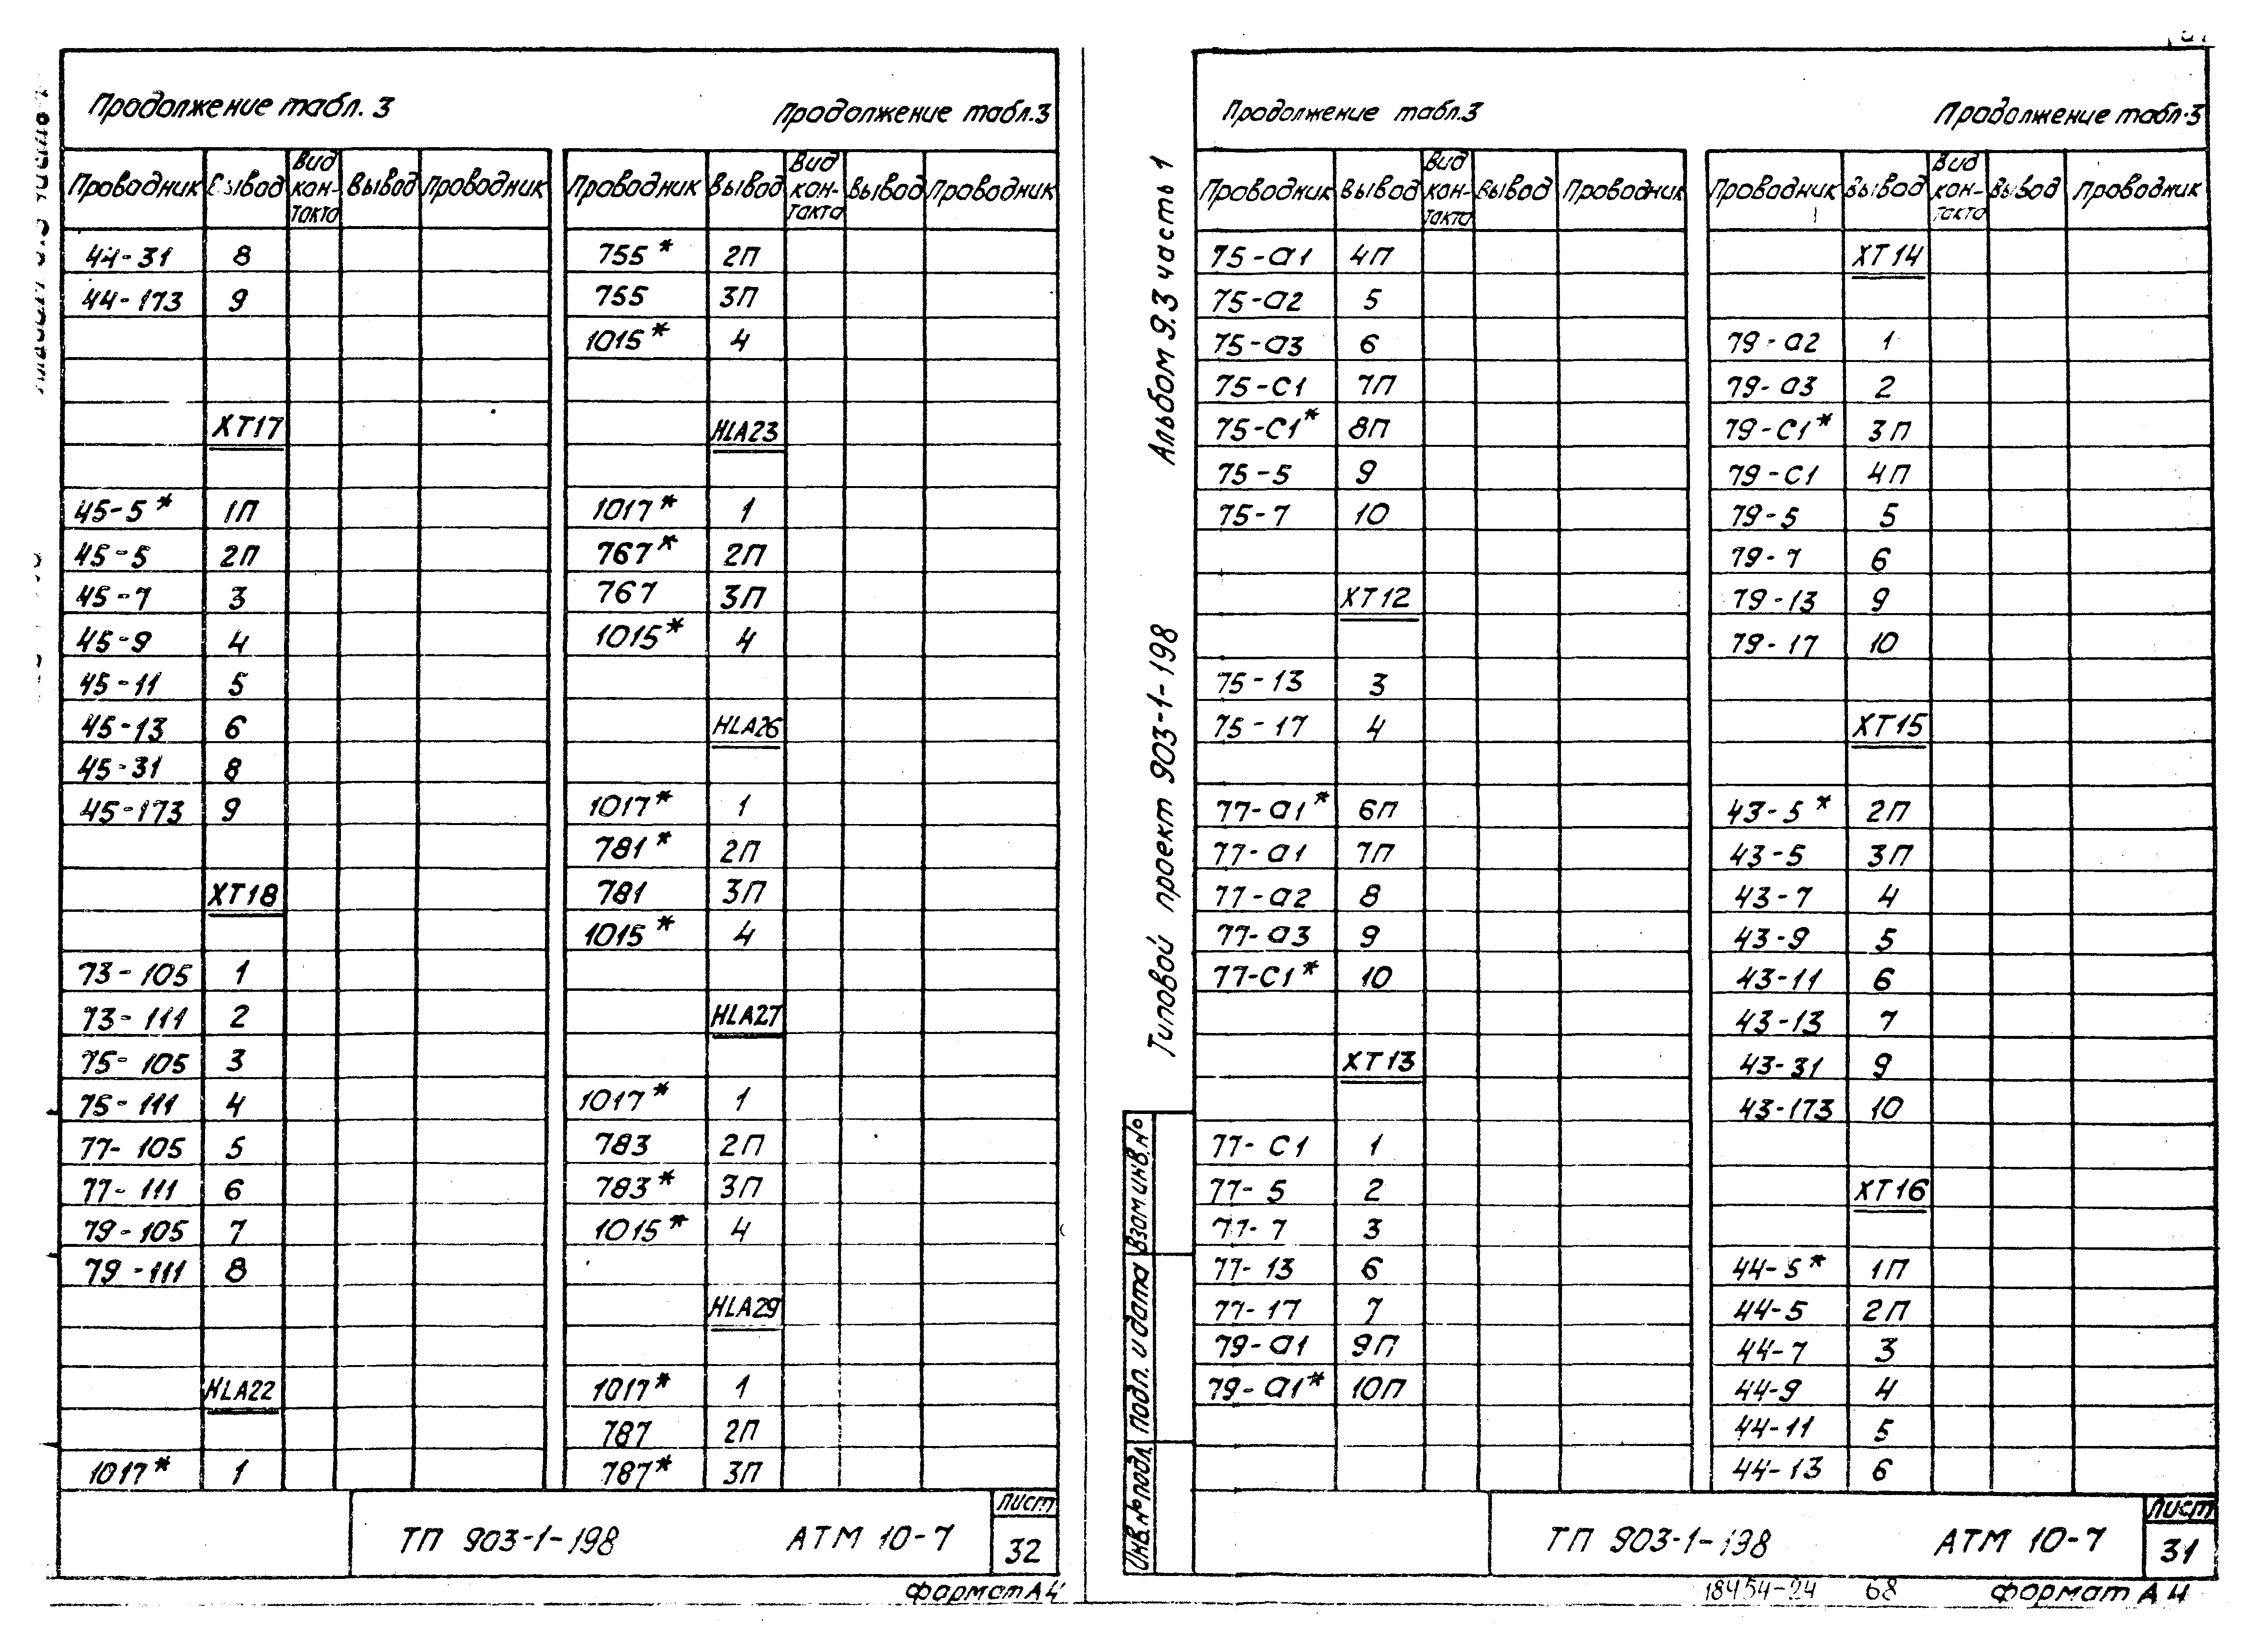 Продолжение табл. 3
Продолжение табл.3
Проводник Вывод Вид кон-такта Вывод Проводник
44-31 8
44-173 9
XT17
45-5* 1П
45-5 2П
45-7 3
45-9 4
45-11 5
45-13 6
45-31 8
45-173 9
XT18
73-105 1
73-111 2
75-105 3
75-111 4
77-105 5
77-111 6
79-105 7
79-111 8
HLA22
1017* 1
Проводник Вывод Вид кон-такта Вывод Проводник
755* 2П
755 3П
1015* 4
HLA23
1017* 1
767* 2П
767 3П
1015* 4
HLA26
1017* 1
781* 2П
781 3П
1015* 4
HLA27
1017* 1
783 2П
783* 3П
1015* 4
HLA29
1017* 1
787 2П
787* 3П
ТП 903-1-198 АТМ 10-7
Лист
32
формат А4
Альбом 9.3 часть 1
Типовой проект 903-1-198
Взам.инв.№
Подп. и дата
Инв.№подл.
Продолжение табл.3
Продолжение табл.3
Проводник Вывод Вид кон-такта Вывод Проводник
75-а1 4П
75-а2 5
75-а3 6
75-С1 7П
75-С1* 8П
75-5 9
75-7 10
XT12
75-13 3
75-17 4
77-а1* 6П
77-а1 7П
77-а2 8
77-а3 9
77-С1* 10
XT13
77-С1 1
77-5 2
77-7 3
77-13 6
77-17 7
79-а1 9П
79-а1* 10П
Проводник Вывод Вид кон-такта Вывод Проводник
XT14
79-а2 1
79-а3 2
79-С1* 3П
79-С1 4П
79-5 5
79-7 6
79-13 9
79-17 10
XT15
43-5* 2П
43-5 3П
43-7 4
43-9 5
43-11 6
43-13 7
43-31 9
43-173 10
XT16
44-5* 1П
44-5 2П
44-7 3
44-9 4
44-11 5
44-13 6
ТП 903-1-198 АТМ 10-7
Лист
31
18454-24 68 формат А4